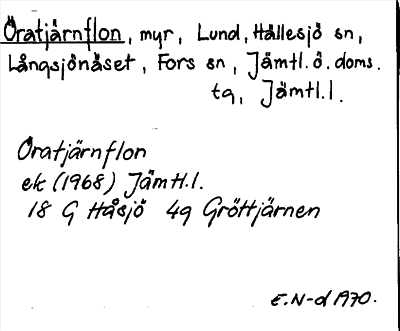 Öratjärnflon, myr, Lund, Hällesjö sn,
Långsjönäset, Fors sn, Jämtl.ö.doms.
tg, Jämtl.l.
Öratjärnflon
ek (1968) Jämtl.l.
18 G Håsjö 4g Gröttjärnen
E.N-d 1970.